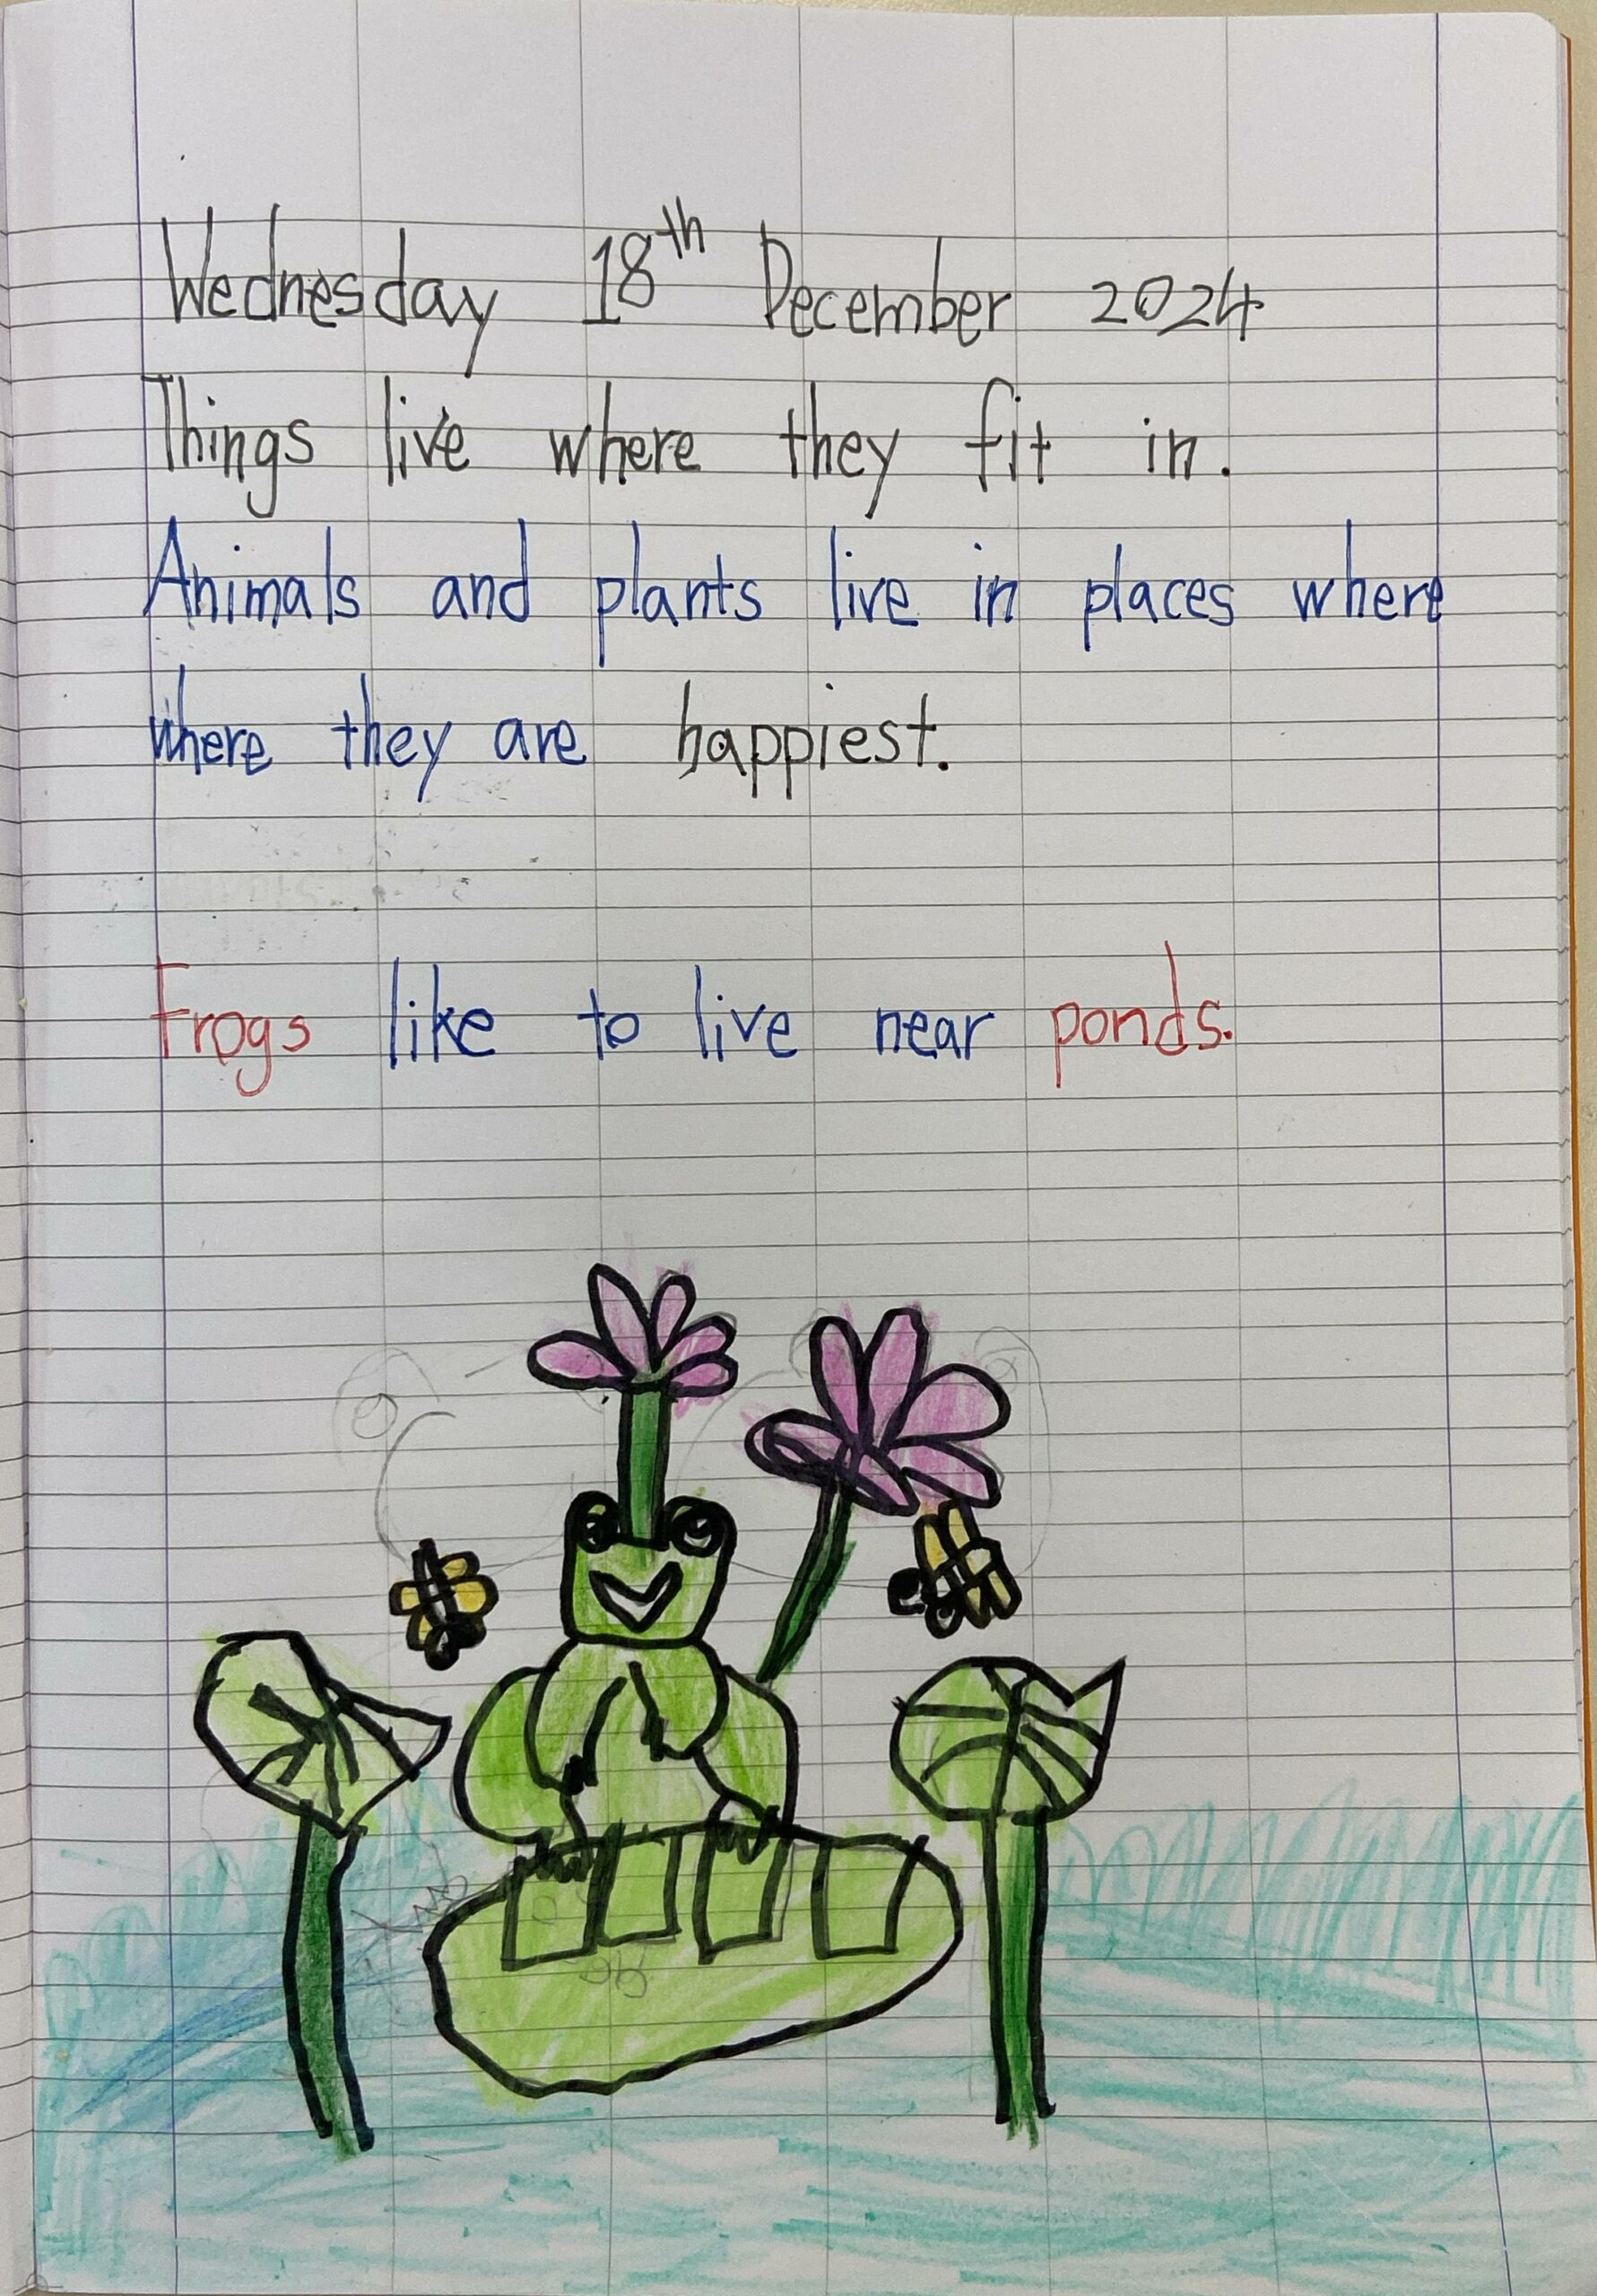 Wednesday 18th December 2024
Things live where they fit in.
Animals and plants live in places where
where they are happiest.
Frogs like to live near ponds.